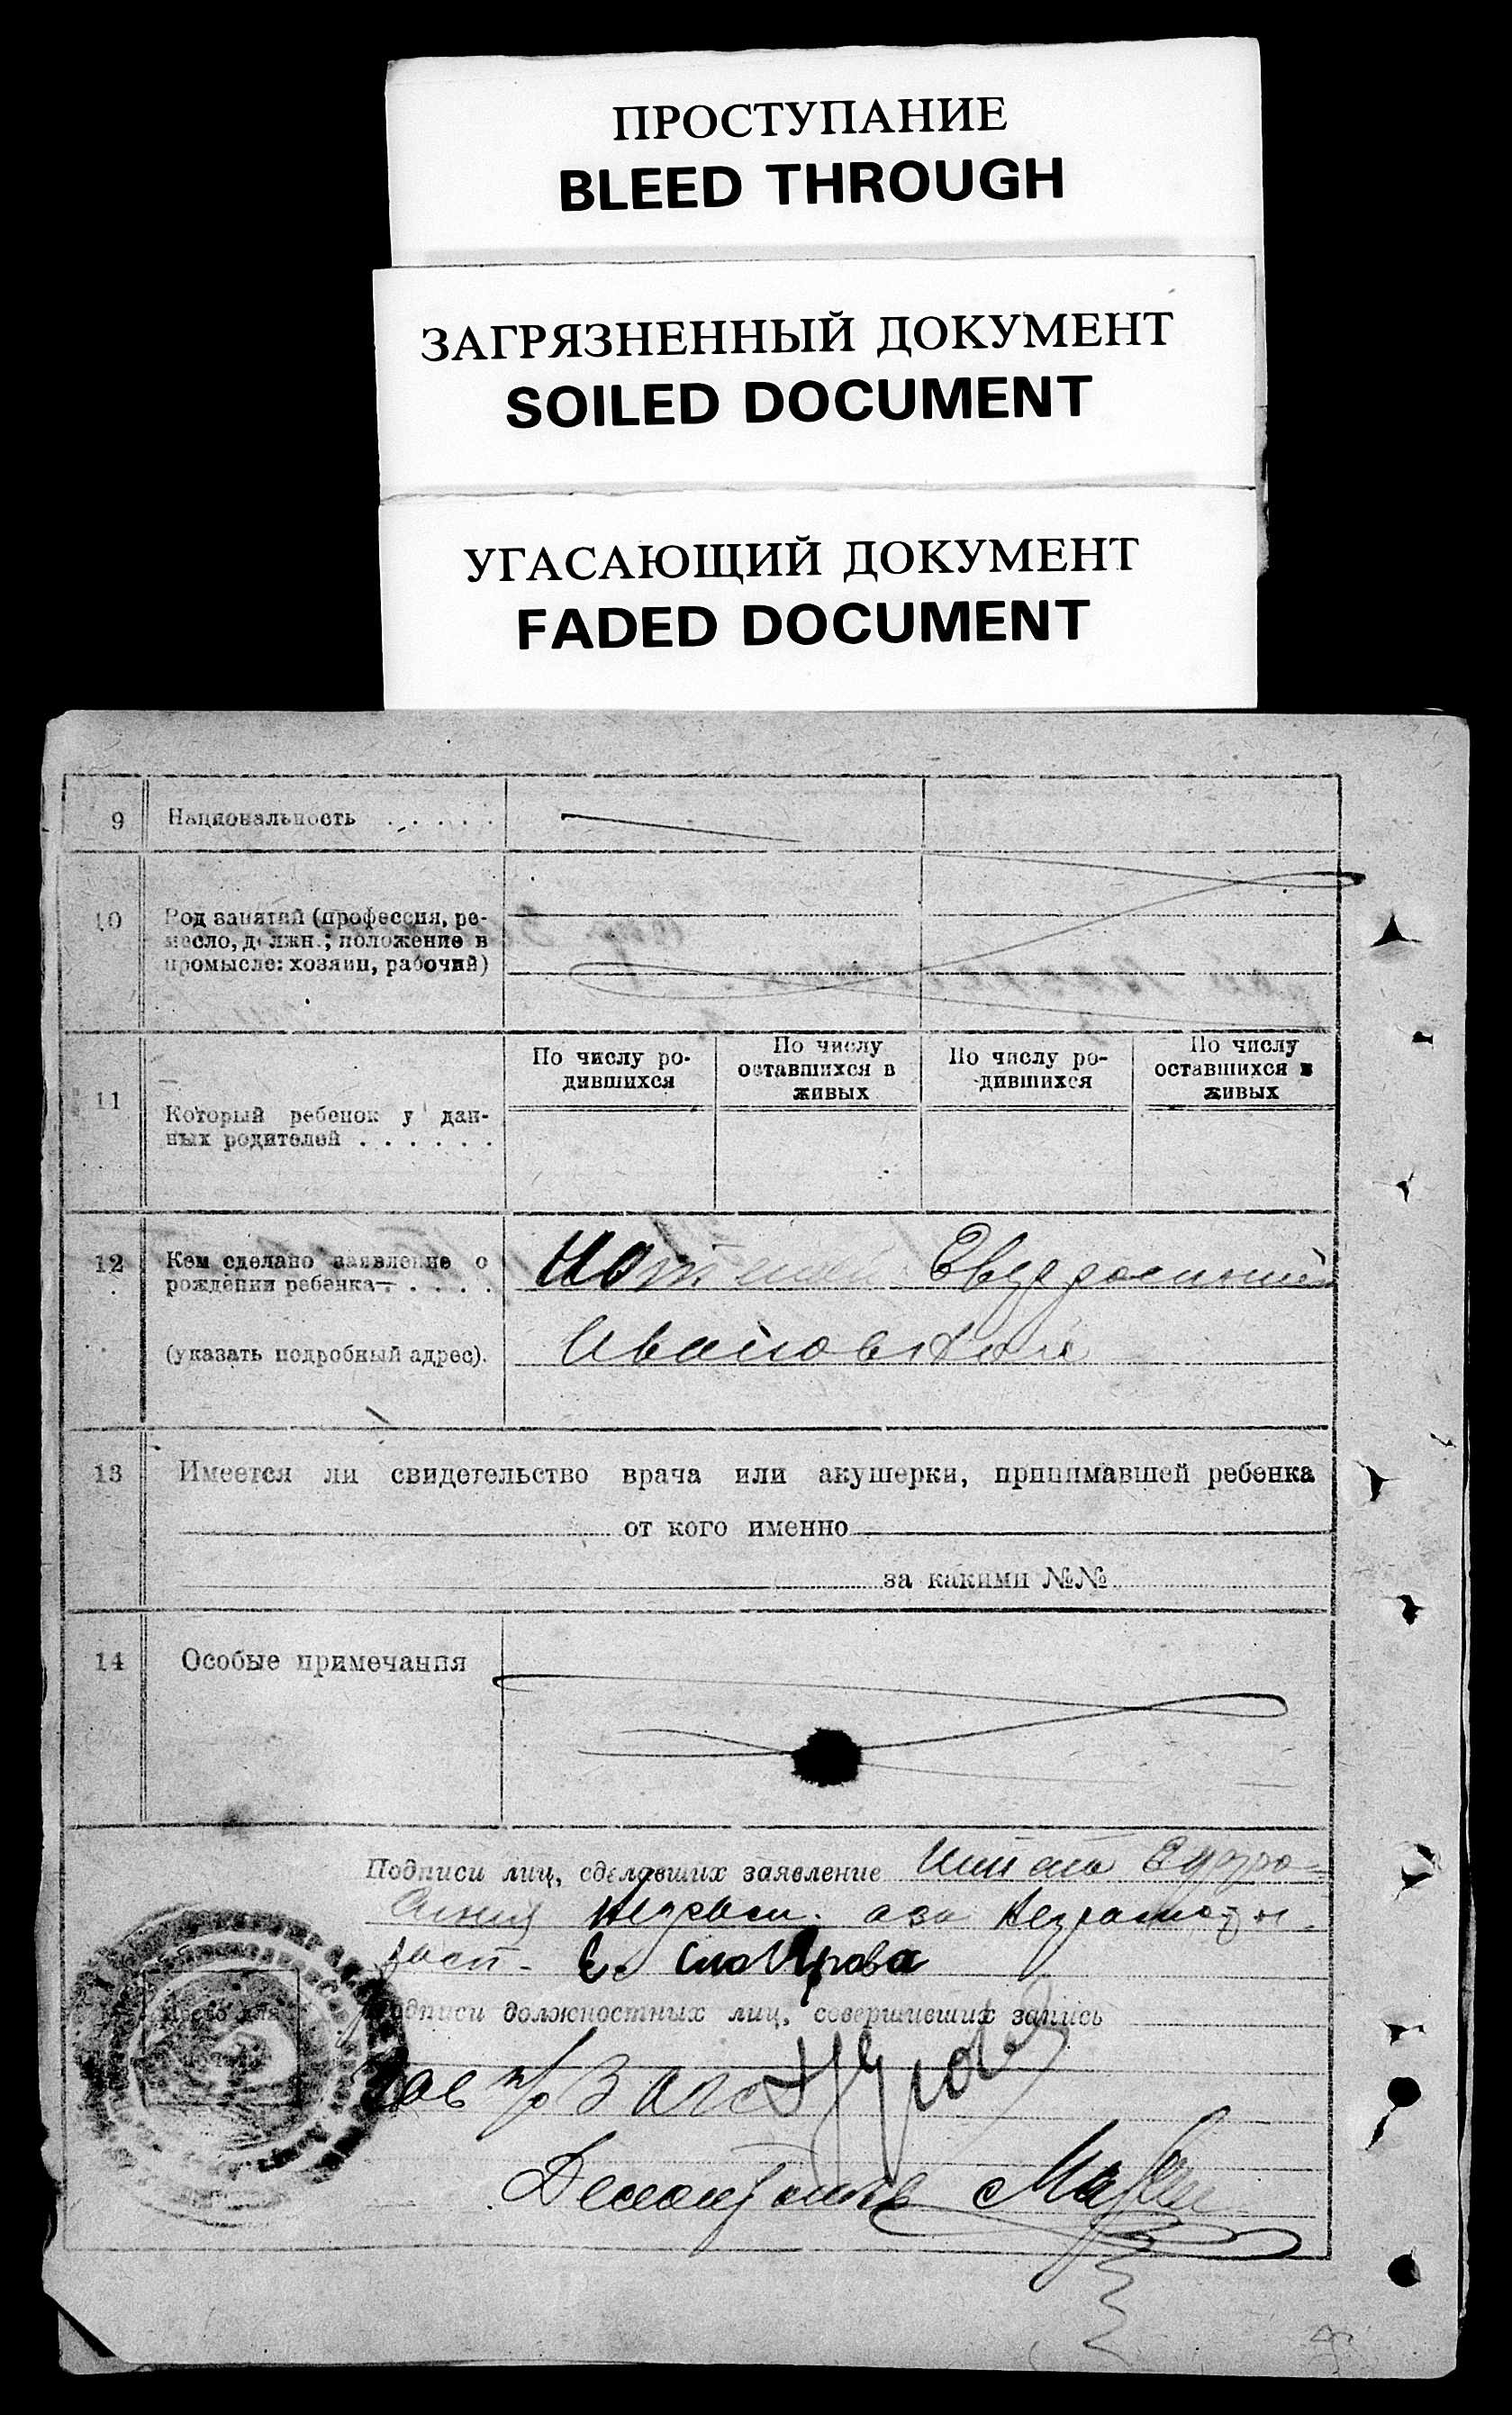 ПРОСТУПАНИЕ
BLEED THROUGH
ЗАГРЯЗНЕННЫЙ ДОКУМЕНТ
SOILED DOCUMENT
УГАСАЮЩИЙ ДОКУМЕНТ
FADED DOCUMENT
9 Национальность . . . . .
10 Род занятий (профессия, ре-
месло, должн.; положение в
промысле: хозяин, рабочий)
11 Который ребенок у дан-
ных родителей . . . . . .
По числу ро-
дившихся
По числу
оставшихся в
живых
По числу ро-
дившихся
По числу
оставшихся в
живых
12 Кем сделано заявление о
рождении ребенка . . . .
(указать подробный адрес).
Ивановской
13 Имеется ли свидетельство врача или акушерки, принимавшей ребенка
от кого именно
за какими №№
14 Особые примечания
Подписи лиц, сделавших заявление
неграмотн.
Е.
Подписи должностных лиц, совершивших запись
Зав ЗАГС